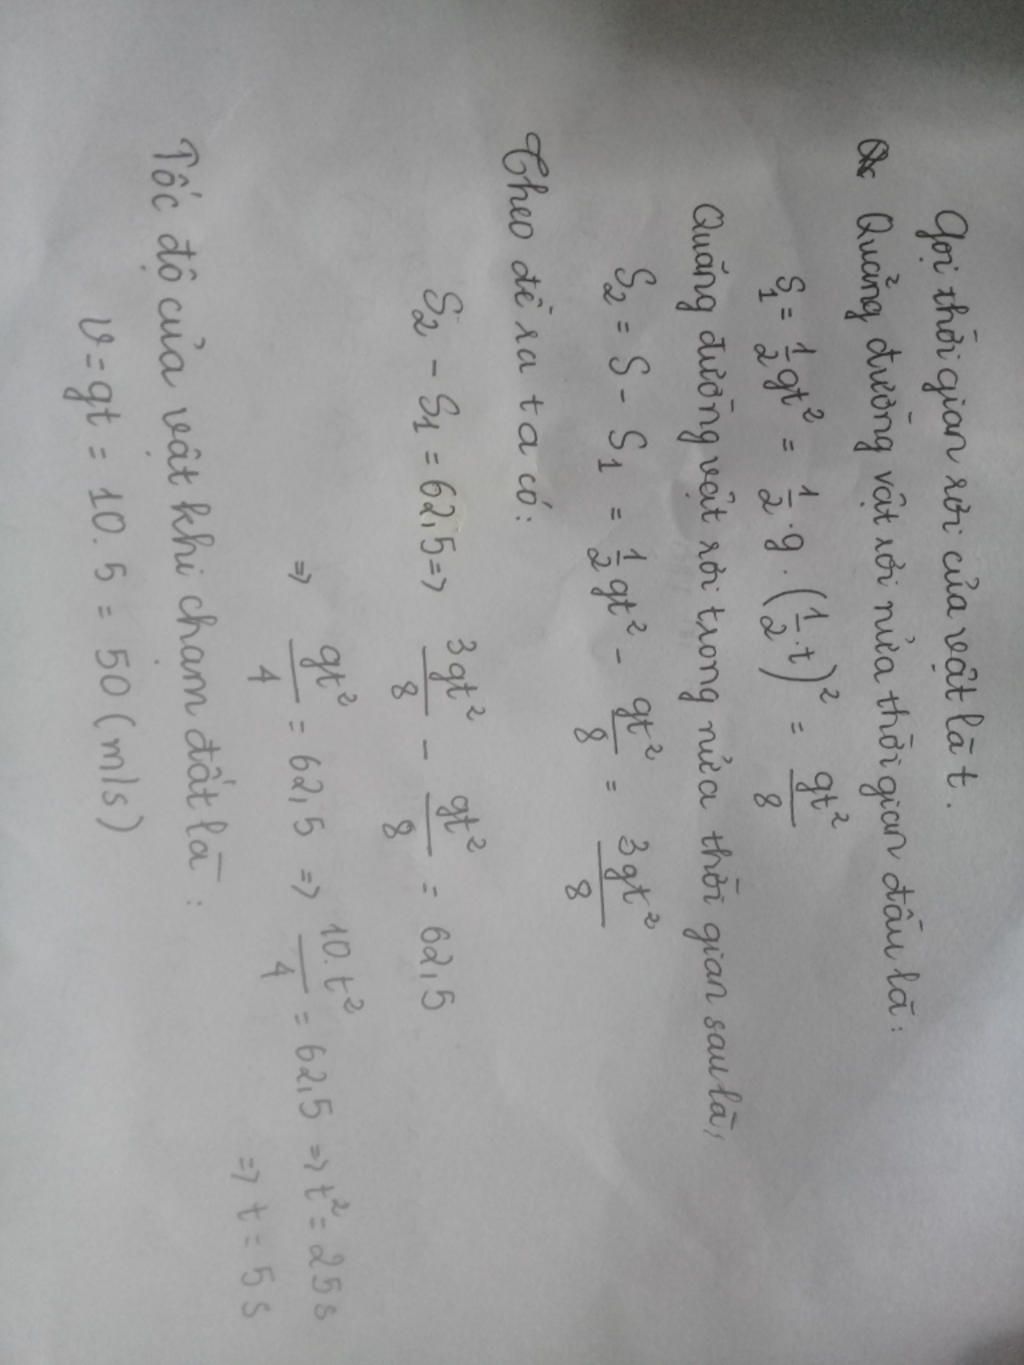 Gọi thời gian rơi của vật là t.
Quảng đường vật rơi nửa thời gian đầu là:
S₁ = 1/2 gt² = 1/2 . g . (1/2 . t)² = gt²/8
Quãng đường vật rơi trong nửa thời gian sau là,
S₂ = S - S₁ = 1/2 gt² - gt²/8 = 3gt²/8
Theo đề ra ta có:
S₂ - S₁ = 62,5 => 3gt²/8 - gt²/8 = 62,5
=> gt²/4 = 62,5 => 10.t²/4 = 62,5 => t² = 25s
=> t = 5s
Tốc độ của vật khi chạm đất là :
v = gt = 10. 5 = 50 (m/s)